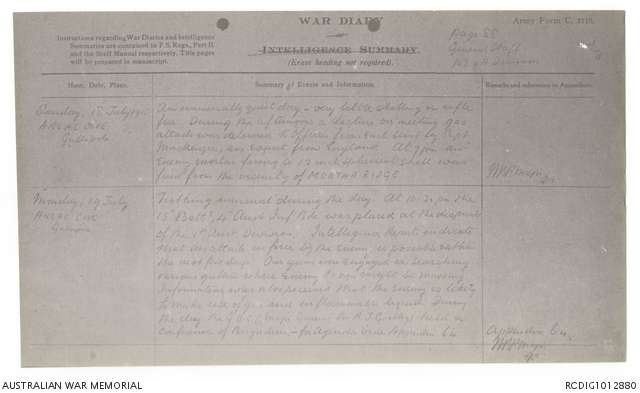 WAR DIARY
Army Form C. 2118.
INTELLIGENCE SUMMARY.
(Erase heading not required).
Instructions regarding War Diaries and Intelligence
Summaries are contained in F.S. Regs., Part II
and the Staff Manual respectively. Title pages
will be prepared in manuscript.
Page 88
General Staff
Hour, Date, Place.
Summary of Events and Information.
Remarks and references to Appendices.
Sunday, 18 July 1915
ANZAC COVE
Gallipoli
An unusually quiet day - very little shelling or rifle
fire. During the afternoon a lecture on
attack was delivered to Officers
Mackenzie, an expert from England. At
Enemy mortar firing a 12 inch spherical shell was
fired from the vicinity of MORTAR RIDGE
Monday, 19 July
ANZAC Cove
Gallipoli
Nothing unusual during the day. At
15 Battn, 4 Aust Inf Bde was placed at the disposal
of the 1st Aust Division. Intelligence reports indicate
that an attack in force by the enemy is possible within
the next few days. Our guns were engaged in searching
various gullies where Enemy
Information was also received that the enemy is likely
to make use of gas and inflammable liquid. During
the day the G.O.C. held a
conference of Brigadiers
Appendix 64
AUSTRALIAN WAR MEMORIAL
RCDIG1012880